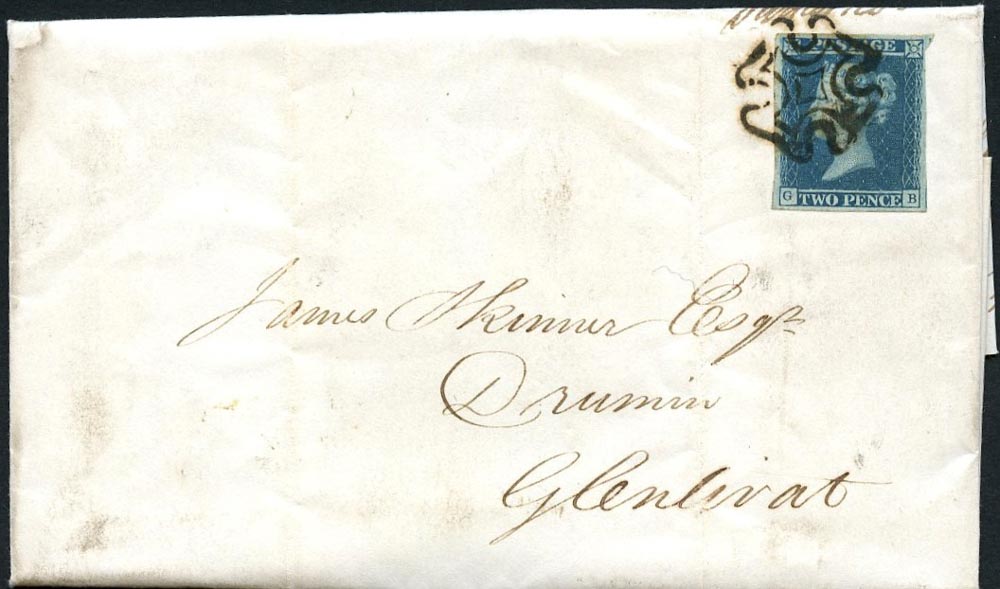 POSTAGE
G TWO PENCE B
James Skinner Esqr
Drumin
Glenlivat